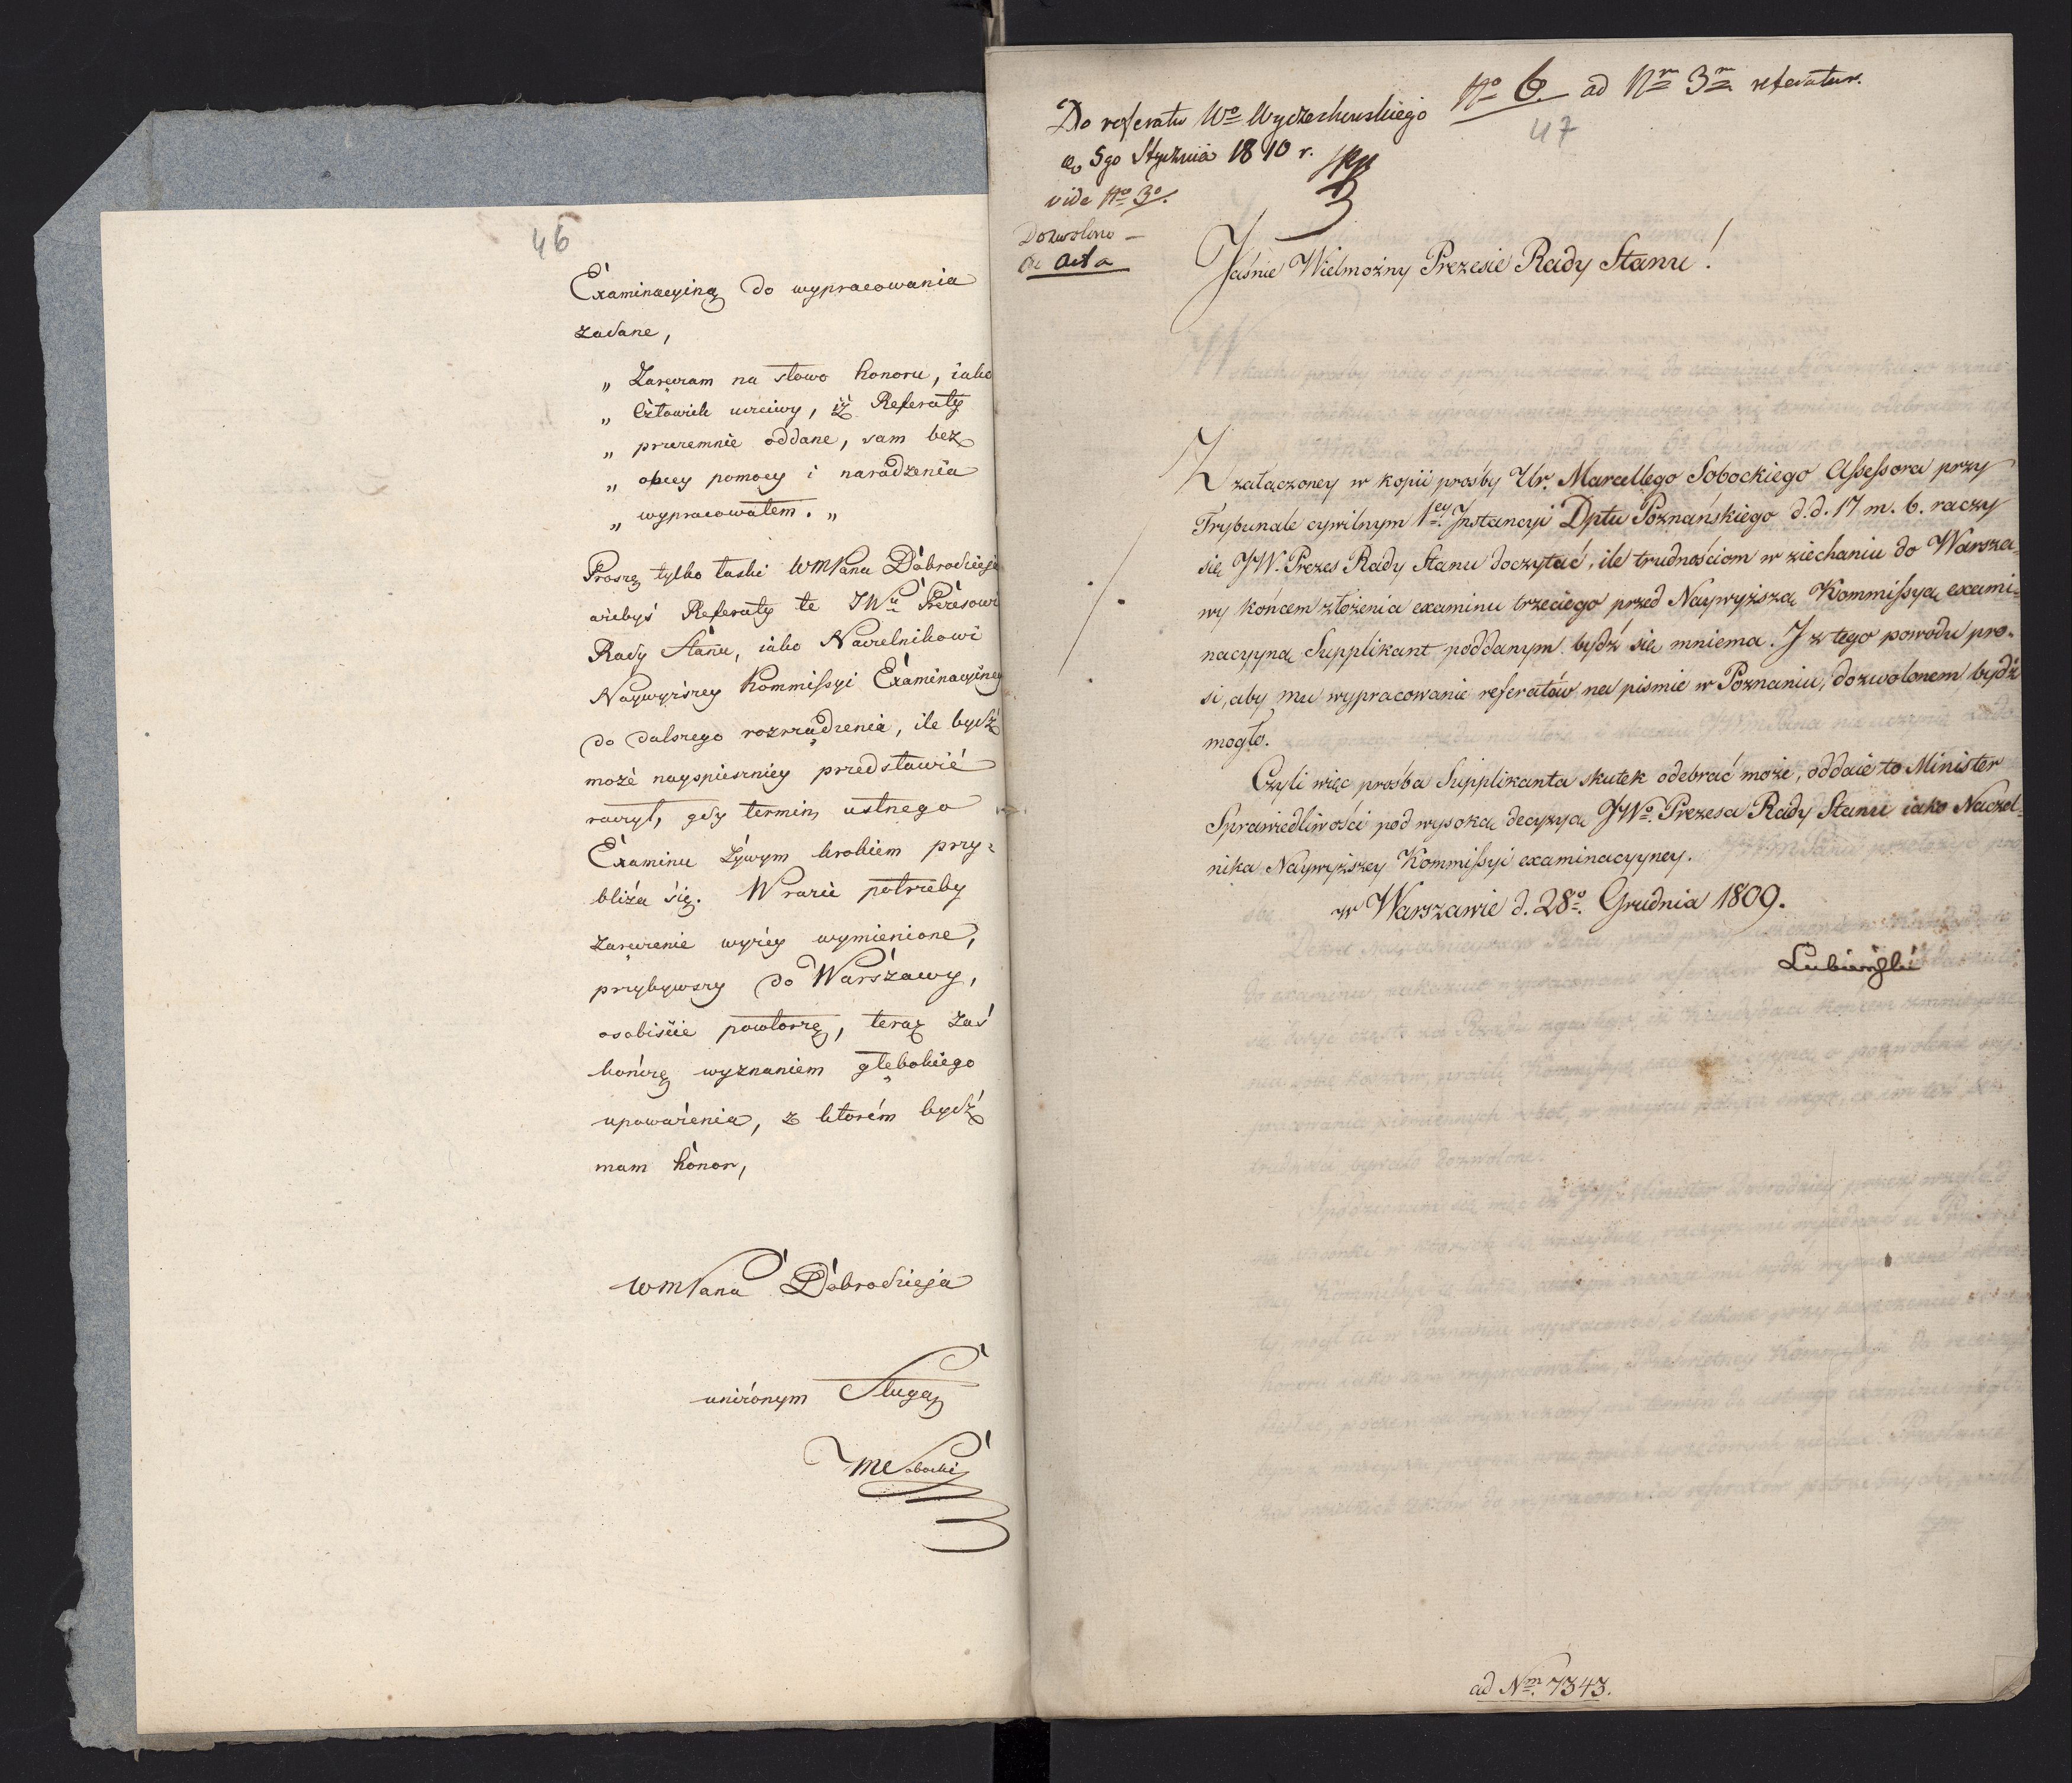 46
Examinacyiną do wypracowania
zadane,
„ Zaręczam na słowo honoru, iako
„ Człowiek uczciwy, iż Referaty
„ przezemnie oddane, sam bez
„ obcey pomocy i naradzenia
„ wypracowałem. „
Proszę tylko łaski WMPana Dobrodzieja
ażebyś Referaty te JWu Prezesowi
Rady Stanu, iako Naczelnikowi
Naywyższey Kommissyi Examinacyiney
do dalszego rozrządzenia, ile bydź
może nayspieszniey przedstawić
raczył, gdy termin ustnego
Examinu żywym krokiem przy-
bliża się. W razie potrzeby
zaręczenie wyżey wymienione,
przybywszy do Warszawy,
osobiście powtorzę, teraz zaś
kończę wyznaniem głębokiego
upoważenia, z ktorém bydź
mam honor,
WMPana Dobrodzieja
uniżonym Sługą
MSobocki
No 6. ad Nrm 3m referatur.
47
Do referatu Wo Wyczechowskiego
do 5go Stycznia 1810 r.
vide No 3o.
Dozwolono –
ad acta
Jaśnie Wielmożny Prezesie Rady Stanu!
Z załączoney w kopii prośby Ur. Marcellego Sobockiego Assessora przy
Trybunale cywilnym 1ey Jnstancyi Dptu Poznańskiego d.d. 17 m. b. raczy
się JW. Prezes Rady Stanu doczytać, ile trudnościom w ziechaniu do Warsza-
wy końcem złożenia examinu trzeciego przed Naywyższą Kommissyą exami-
nacyyną Supplikant poddanym bydź się mniema. J z tego powodu pro-
si, aby mu wypracowanie referatów na pismie w Poznaniu, dozwolonem bydź
mogło.
Czyli więc prośba Supplikanta skutek odebrać może, oddaie to Minister
Sprawiedliwości pod wysoką decyzyą JWo. Prezesa Rady Stanu iako Naczel-
nika Naywyższey Kommissyi examinacyyney.
w Warszawie d. 28o. Grudnia 1809.
Lubieński
ad Nm. 7343.